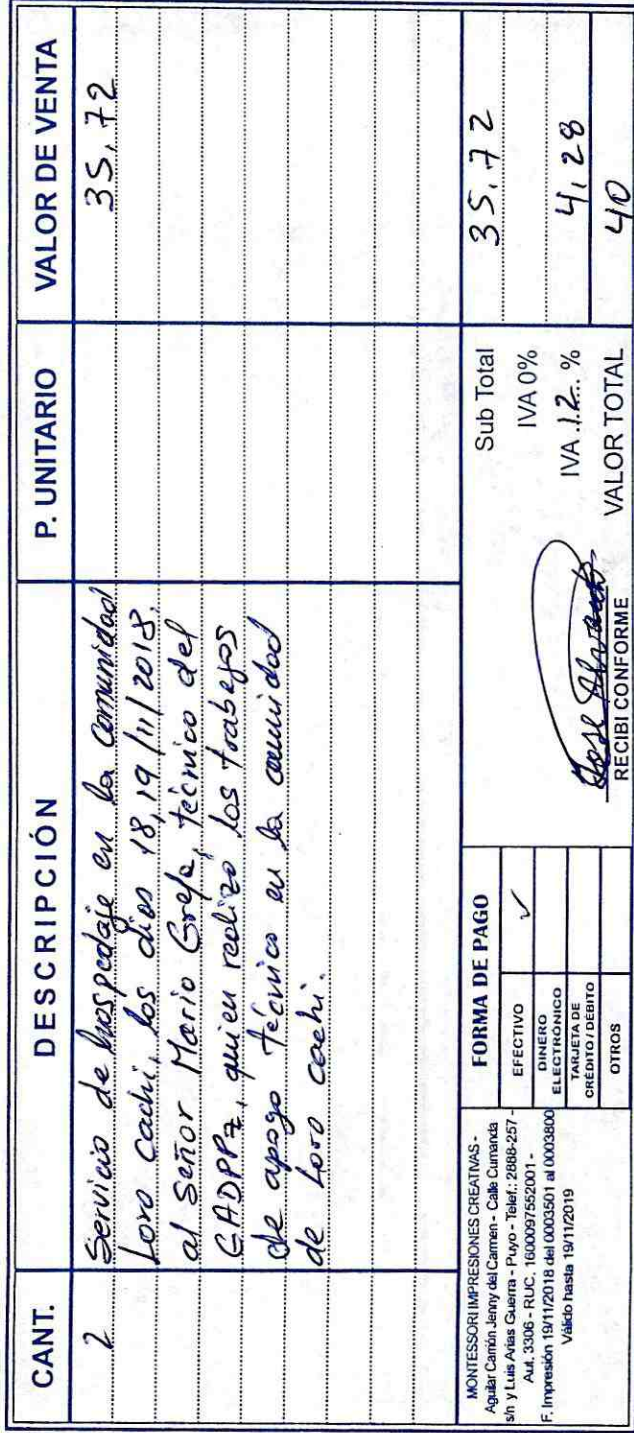 CANT. DESCRIPCIÓN P. UNITARIO VALOR DE VENTA
2 Servicio de hospedaje en la comunidad 35,72
Loro cachi, los dias 18,19/11/2018,
al Señor Mario Grefa, técnico del
GADPPz, quien realizo los trabajos
de apoyo técnico en la comunidad
de Loro cachi.
MONTESSORI IMPRESIONES CREATIVAS -
Aguilar Carrión Jenny del Carmen - Calle Cumanda
s/n y Luis Arias Guerra - Puyo - Telef.: 2888-257 -
Aut. 3306 - RUC. 1600097552001 -
F. Impresión 19/11/2018 del 0003501 al 0003800
Válido hasta 19/11/2019
FORMA DE PAGO
EFECTIVO ✓
DINERO
ELECTRÓNICO
TARJETA DE
CRÉDITO / DEBITO
OTROS
Jose
RECIBI CONFORME
Sub Total 35,72
IVA 0%
IVA 12 % 4,28
VALOR TOTAL 40